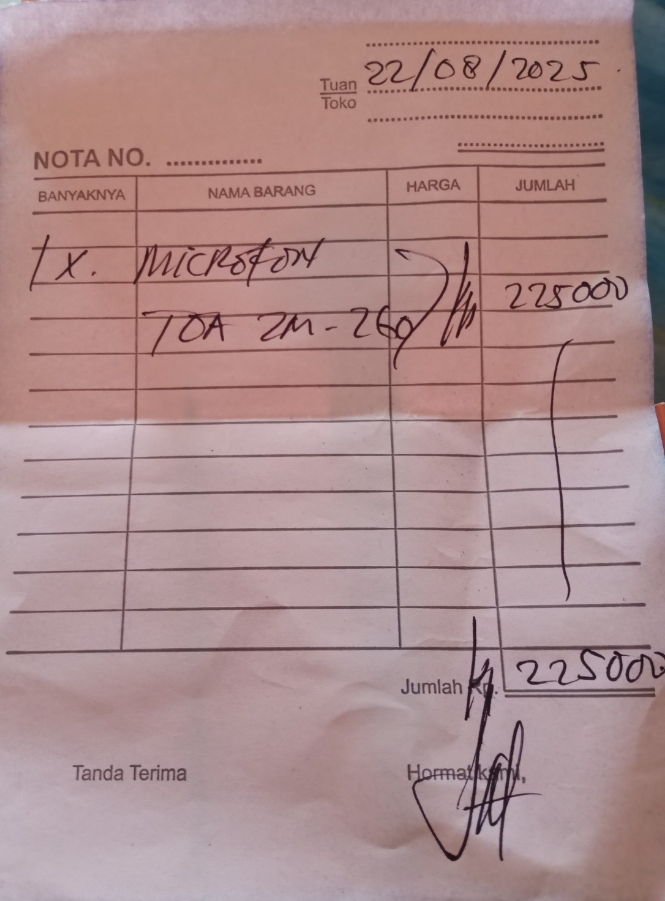 Tuan
Toko
22/08/2025
NOTA NO. ...............
BANYAKNYA NAMA BARANG HARGA JUMLAH
1 X. MICROFON
TOA ZM-260 Rp 225000
Jumlah Rp. 225000
Tanda Terima Hormat kami,